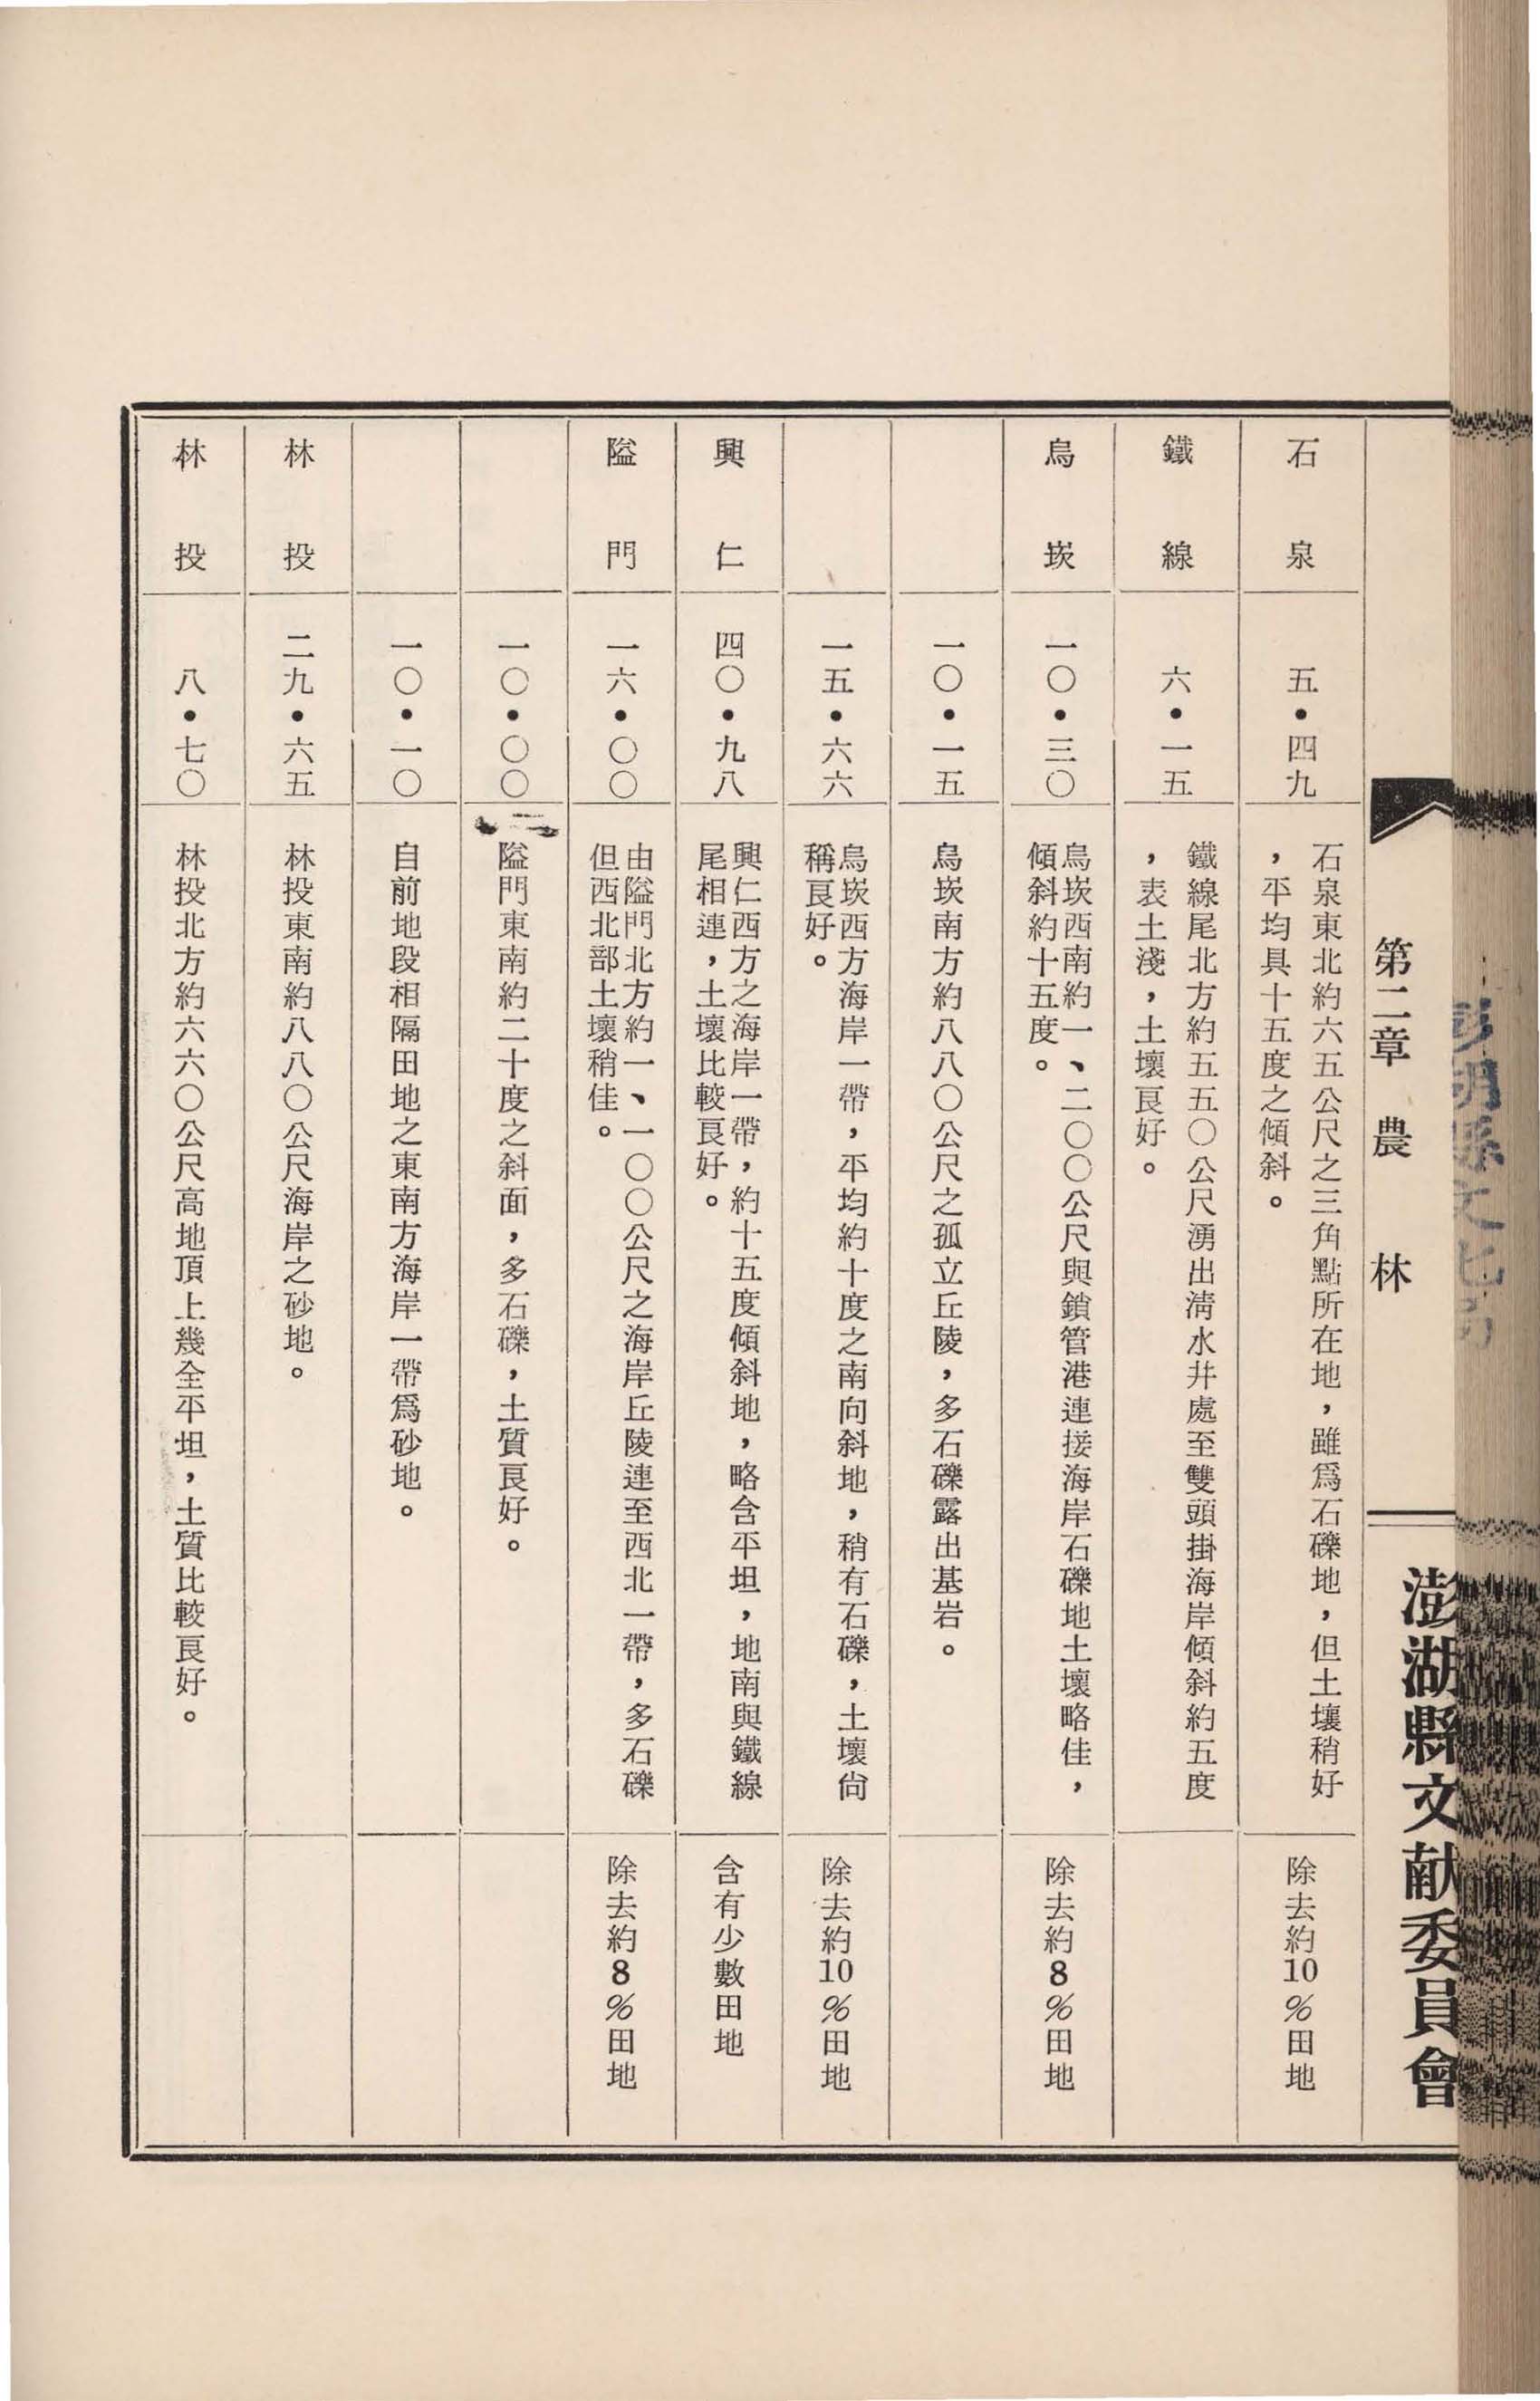 第二章　農　林
澎湖縣文献委員會
石泉
五・四九
石泉東北約六五公尺之三角點所在地，雖爲石礫地，但土壤稍好
，平均具十五度之傾斜。
除去約10%田地
鐵線
六・一五
鐵線尾北方約五五〇公尺湧出淸水井處至雙頭掛海岸傾斜約五度
，表土淺，土壤良好。
烏崁
一〇・三〇
烏崁西南約一、二〇〇公尺與鎖管港連接海岸石礫地土壤略佳，
傾斜約十五度。
除去約8%田地
一〇・一五
烏崁南方約八八〇公尺之孤立丘陵，多石礫露出基岩。
一五・六六
烏崁西方海岸一帶，平均約十度之南向斜地，稍有石礫，土壤尙
稱良好。
除去約10%田地
興仁
四〇・九八
興仁西方之海岸一帶，約十五度傾斜地，略含平坦，地南與鐵線
尾相連，土壤比較良好。
含有少數田地
隘門
一六・〇〇
由隘門北方約一、一〇〇公尺之海岸丘陵連至西北一帶，多石礫
但西北部土壤稍佳。
除去約8%田地
一〇・〇〇
隘門東南約二十度之斜面，多石礫，土質良好。
一〇・一〇
自前地段相隔田地之東南方海岸一帶爲砂地。
林投
二九・六五
林投東南約八八〇公尺海岸之砂地。
林投
八・七〇
林投北方約六六〇公尺高地頂上幾全平坦，土質比較良好。